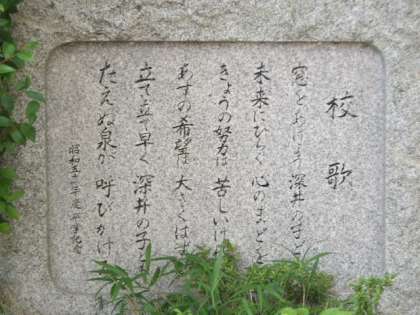 校歌
窓をあけよう 深井の子ど
未来にひらく 心のまどを
きょうの努力は 苦しいけ
あすの希望は 大きくはず
立て立て早く 深井の子
たえぬ泉が 呼びかけ
昭和五十二年度 卒業記念